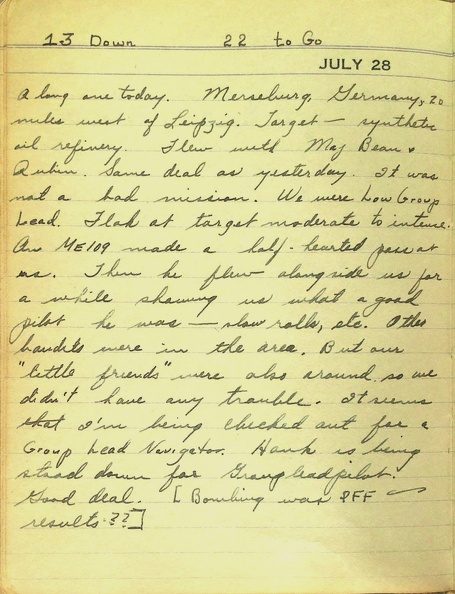 13 Down 22 to Go
JULY 28
A long one today. Merseburg, Germany, 20
miles west of Leipzig. Target — synthetic
oil refinery. Flew with Maj Bean &
Rubin. Same deal as yesterday. It was
not a bad mission. We were Low Group
Lead. Flak at target moderate to intense.
An ME109 made a half-hearted pass at
us. Then he flew alongside us for
a while showing us what a good
pilot he was — slow rolls, etc. Other
bandits were in the area. But our
"little friends" were also around so we
didn't have any trouble. It seems
that I'm being checked out for a
Group Lead Navigator. Hank is being
stood down for Group lead pilot.
Good deal. [Bombing was PFF —
results-??]